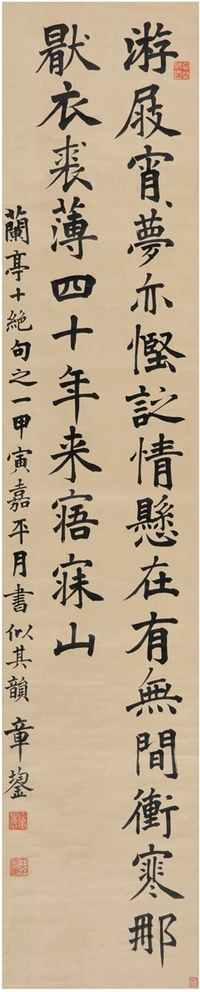 游屐宵夢亦慳詑情懸在有無間衝寒那
厭衣裘薄四十年来寤寐山
蘭亭十絕句之一甲寅嘉平月書似其韻章鋆